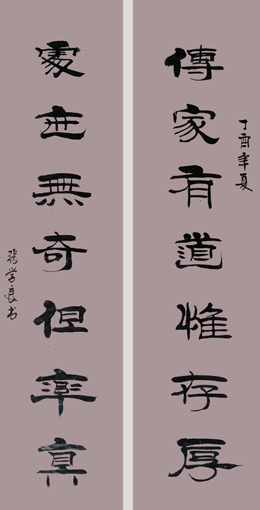 傳家有道惟存厚
丁酉年夏
處世無奇但率真
張学良书